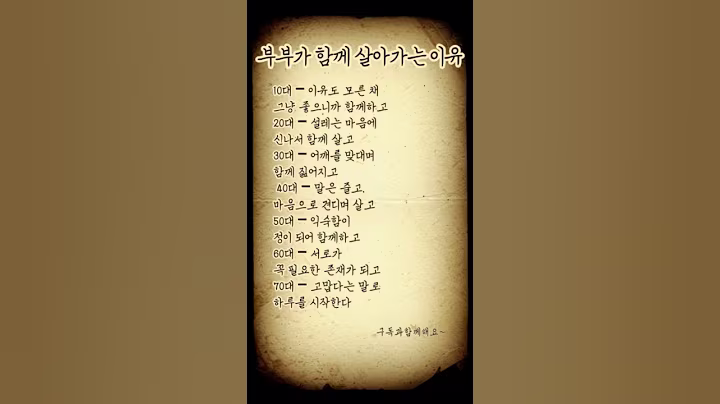 부부가 함께 살아가는 이유
10대 - 이유도 모른 채
그냥 좋으니까 함께하고
20대 - 설레는 마음에
신나서 함께 살고
30대 - 어깨를 맞대며
함께 짊어지고
40대 - 말은 줄고,
마음으로 견디며 살고
50대 - 익숙함이
정이 되어 함께하고
60대 - 서로가
꼭 필요한 존재가 되고
70대 - 고맙다는 말로
하루를 시작한다
구독과함께해요~